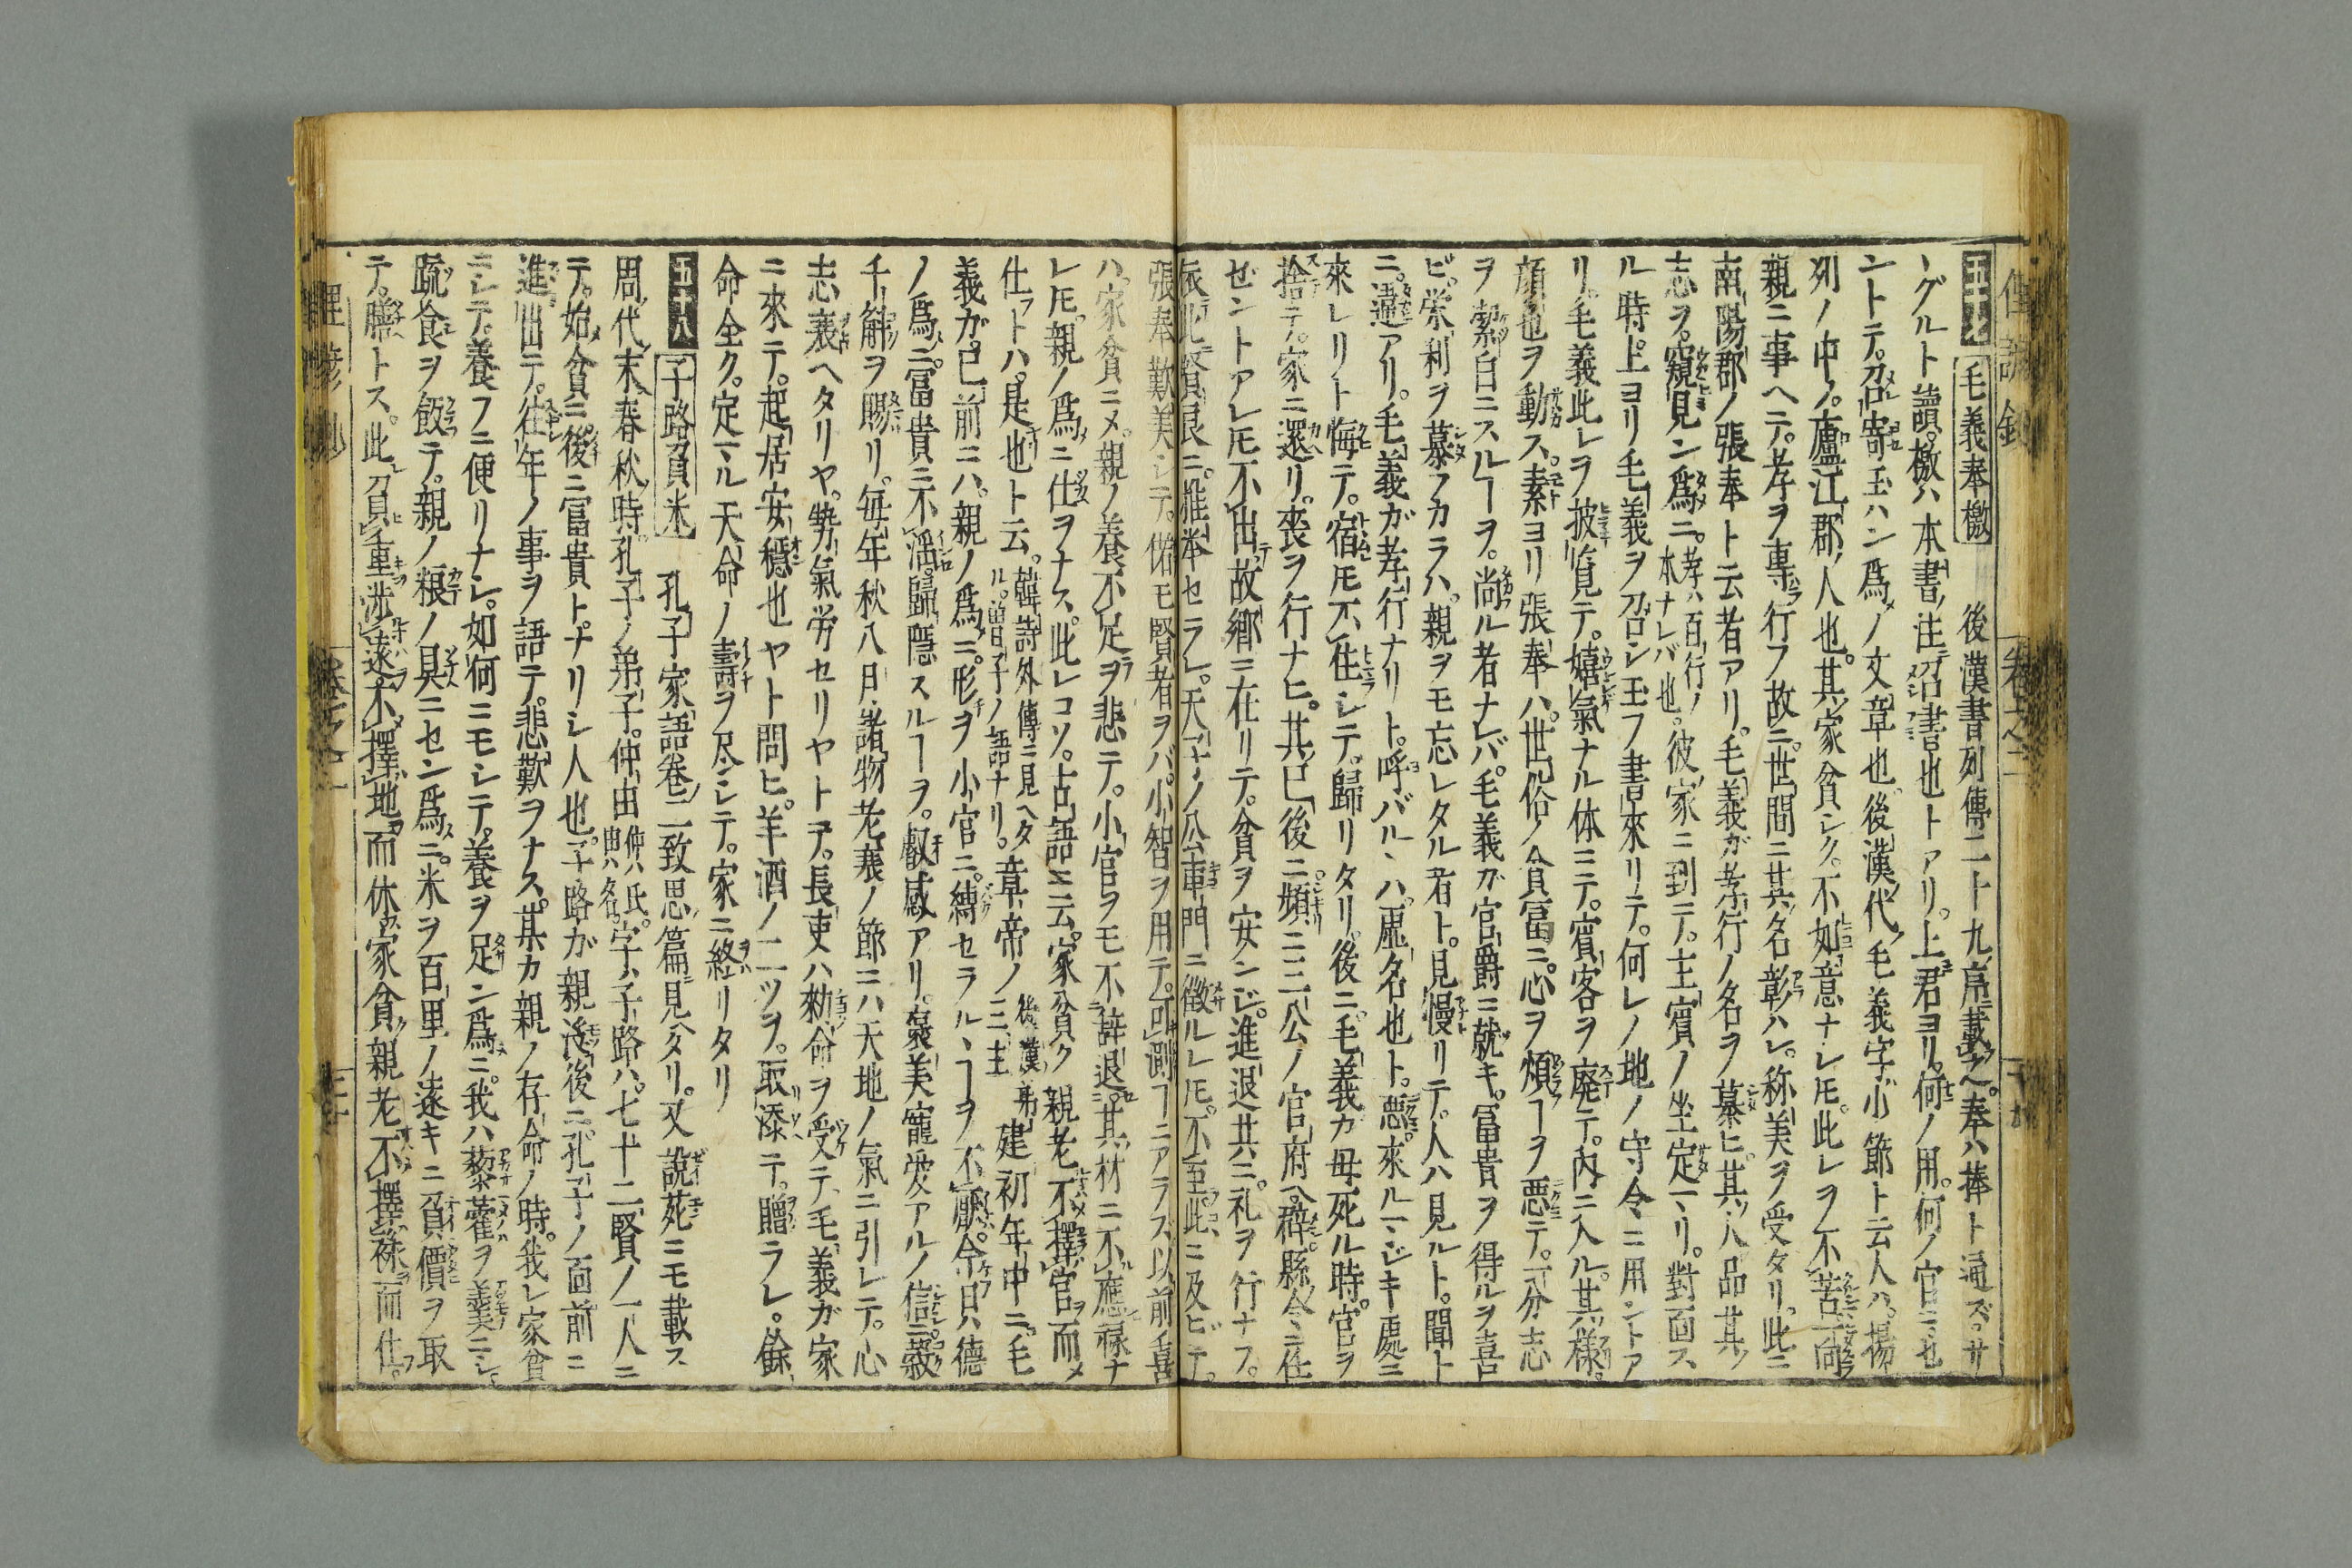 五十七 毛義奉檄 後漢書列傳二十九序載之。奉ハ捧ト通ズ。サ
ーグルト讀。檄ハ本書ノ注ニ召書也トアリ。上君ヨリ。何ノ用。何ノ官ニ也
ントテ。召寄玉ハン爲メノ文章也。後漢代ノ毛義字ハ小節ト云人ハ。揚
列ノ中ノ。廬江郡ノ人也。其家貧シク。不如意ナレ𪜈。此レヲ不苦。一向
親ニ事ヘテ。孝ヲ專ラ行フ故ニ。世間ニ其名彰ハレ。称美ヲ受タリ。此ニ
南陽郡ノ張奉ト云者アリ。毛義ガ孝行ノ名ヲ慕ヒ。其人品其ノ
志ヲ。窺見ン爲ニ。孝ハ百行ノ本ナレバ也。彼家ニ到テ。主賓ノ坐定マリ。對面ス
ル時。上ヨリ毛義ヲ召シ玉フ書來リテ。何レノ地ノ守令ニ用ントア
リ。毛義此レヲ披覧テ。嬉氣ナル体ニテ。賓客ヲ廃テ。内ニ入ル。其様。
顔也ヲ動ス。素ヨリ張奉ハ。世俗ノ貪冨ニ。心ヲ煩ーヲ悪テ。一分志
ヲ潔白ニスルーヲ。尚ル者ナレバ。毛義ガ官爵ニ就キ。冨貴ヲ得ルヲ喜
ビ。栄利ヲ慕フカラハ。親ヲモ忘レタル者ト。見慢リテ。人ハ見ルト。聞ト
ニ。違アリ。毛義ガ孝行ナリト。呼バルヽハ。虚名也ト。悪。來ルマジキ處ニ
來レリト悔テ。宿𪜈不住シテ。歸リタリ。後ニ。毛義カ母死ル時。官ヲ
捨テ。家ニ還リ。喪ヲ行ナヒ。其已後ニ頻ニ三公ノ官府ヘ辟。縣令ニ任
ゼントアレ𪜈不出。故郷ニ在リテ。貧ヲ安ンジ。進退共ニ。礼ヲ行ナフ。
依此賢良ニ。推挙セラレ。天子ノ公車門ニ徴ルレ𪜈。不至。此ニ及ビテ。
張奉歎美シテ。偖モ賢者ヲバ。小智ヲ用テ。可測ーニアラズ。以前喜
ハ。家貧ニメ。親ノ養不足ヲ悲テ。小官ヲモ不辞退。其材ニ不應禄ナ
レ𪜈。親ノ爲ニ仕ヲナス。此レコソ。占語ニ云。家貧ク親老不擇官而
仕フトハ。是也ト云。韓詩外傳ニ見ヘタル。曽子ノ語ナリ。章帝ノ後漢第三主建初年中ニ。毛
義ガ。已前ニハ。親ノ爲ニ。形ヲ小官ニ。縛セラルヽーヲ不厭。今日ハ德
ノ爲ニ。冨貴ニ不滛。歸隱スルーヲ。叡感アリ。褒美寵愛アルノ信ニ。穀
千斛ヲ賜リ。毎年秋八月。諸物老衰ノ節ニハ天地ノ氣ニ引レテ。心
志衰ヘタリヤ。勢氣労セリヤトテ。長吏ハ勅命ヲ受テ。毛義ガ家
ニ來テ。起居安穩也ヤト問ヒ。羊酒ノ二ツヲ。取添テ。贈ラレ。餘
命全ク。定マル天命ノ壽ヲ尽シテ。家ニ終リタリ
五十八 子路負米 孔子家語卷二致思篇ニ見タリ。又説苑ニモ載ス
周ノ代ノ末。春秋ノ時。孔子ノ弟子。仲由仲ハ氏。由ハ名。字ハ子路ハ。七十二賢ノ一人ニ
テ。始貧ニ。後ニ冨貴トナリシ人也。子路ガ親没後ニ孔子ノ面前ニ
進出テ。往年ノ事ヲ語テ。悲歎ヲナス。某カ親ノ存命ノ時。我レ家貧
ニシテ。養フニ便リナシ。如何ニモシテ。養ヲ足ン爲ニ。我ハ藜藿ヲ羹ニシ。
疏食ヲ飯テ。親ノ粮ノ具ニセン爲ニ。米ヲ百里ノ遠キニ負。價ヲ取
テ。贍トス。此負重渉遠不擇地而休。家貧親老不擇祿而仕。
卷之二